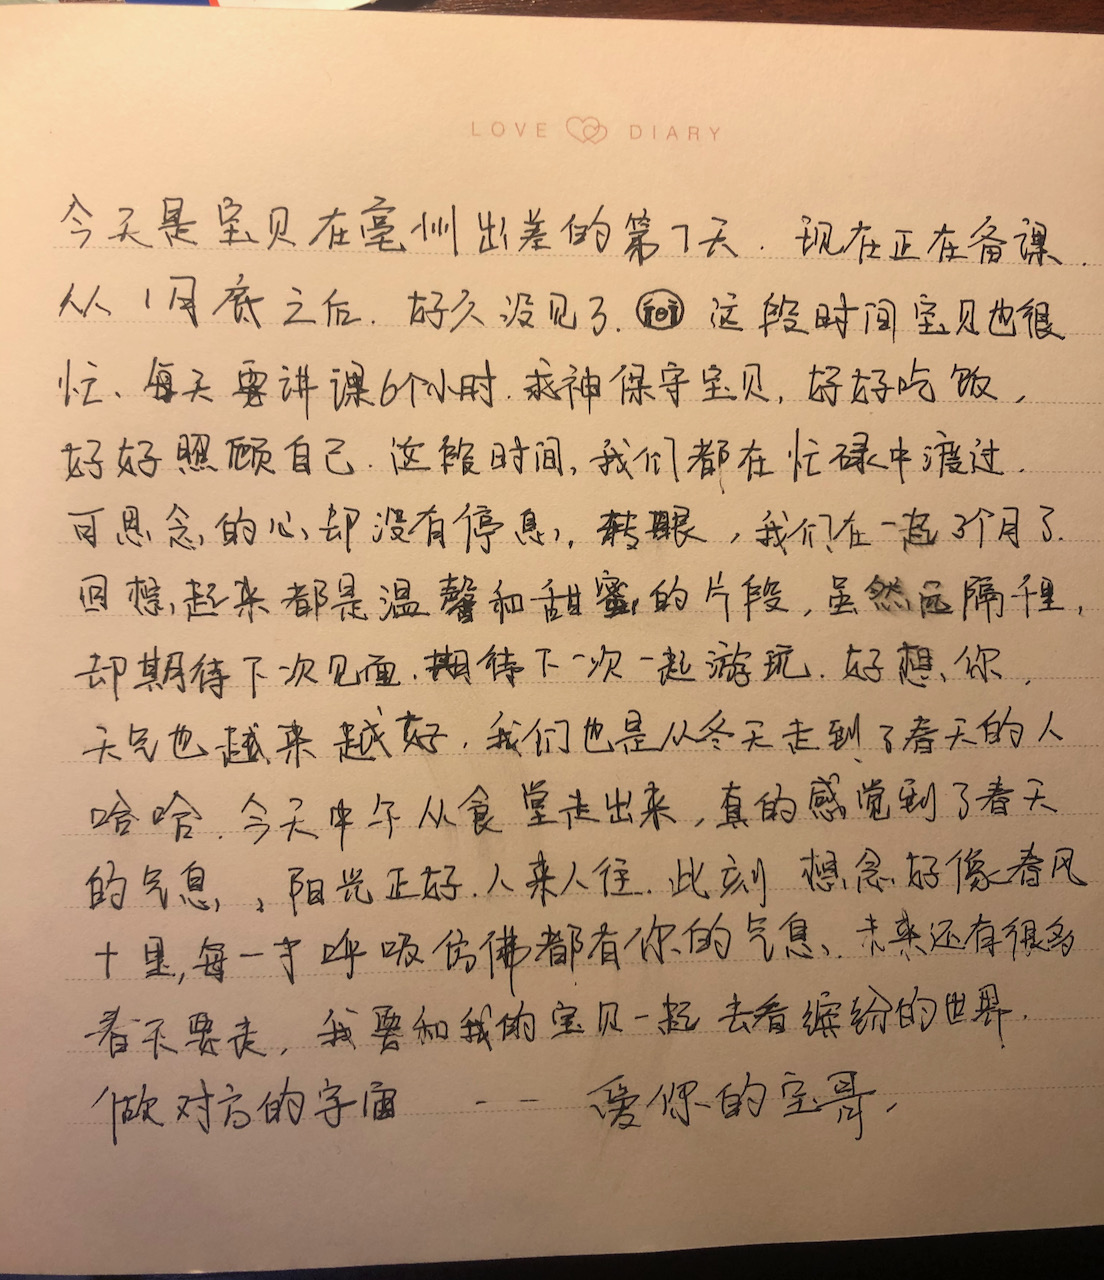 LOVE DIARY
今天是宝贝在亳州出差的第7天. 现在正在备课.
从1月底之后. 好久没见了. 这段时间宝贝也很
忙、每天要讲课6个小时. 求神保守宝贝, 好好吃饭,
好好照顾自己. 这段时间, 我们都在忙碌中渡过.
可思念的心却没有停息, 转眼, 我们在一起3个月了.
回想起来都是温馨和甜蜜的片段, 虽然远隔千里,
却期待下次见面. 期待下一次一起游玩. 好想你,
天气也越来越好. 我们也是从冬天走到了春天的人
哈哈. 今天中午从食堂走出来, 真的感觉到了春天
的气息, 阳光正好. 人来人往. 此刻 想念好像春风
十里, 每一寸呼吸仿佛都有你的气息、未来还有很多
着不要走, 我要和我的宝贝一起去看缤纷的世界.
做对方的宇宙 -- 爱你的宝哥,